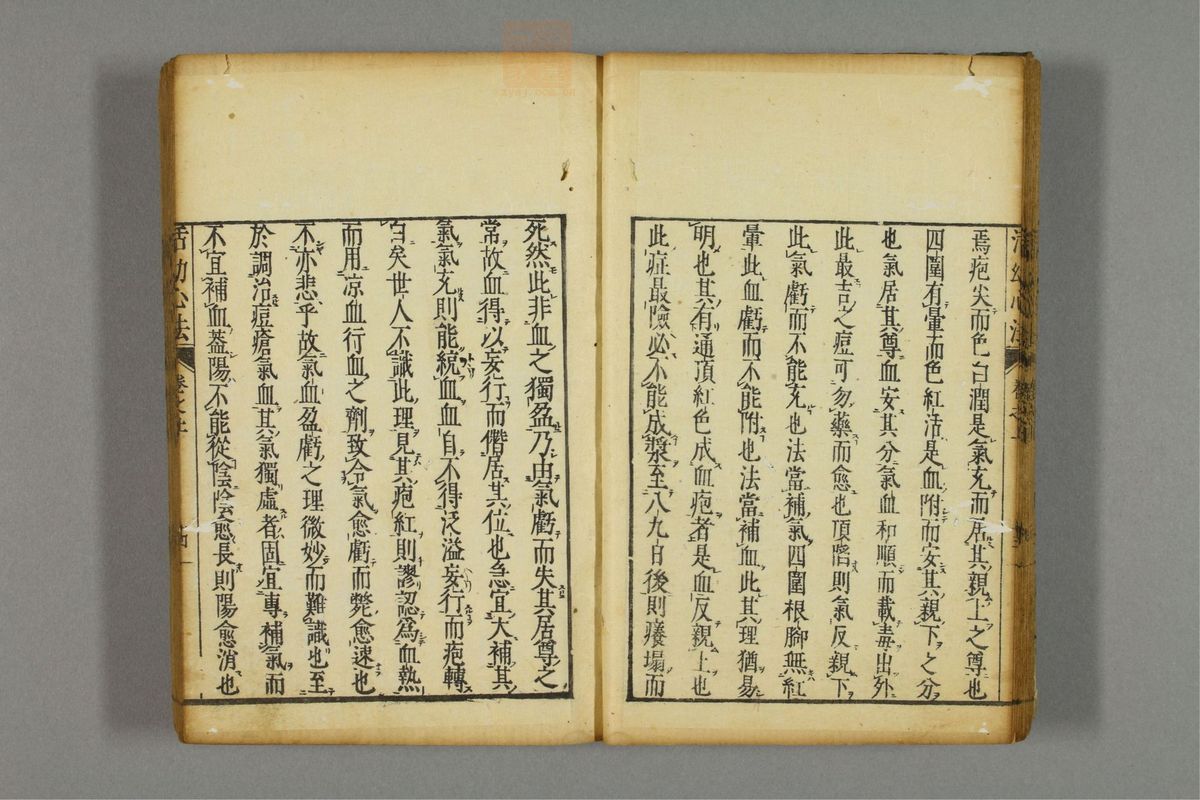 焉疱尖而色白潤是氣充而居其親上之尊也
四圍有暈而色紅活是血附而安其親下之分
也氣居其尊血安其分氣血和順而載毒出外
此最吉之痘可勿藥而愈也頂陷則氣反親下
此氣虧而不能充也法當補氣四圍根脚無紅
暈此血虧而不能附也法當補血此其理猶易
明也其有通頂紅色成血疱者是血反親上也
此症最險必不能成漿至八九日後則癢塌而
死然此非血之獨盈乃由氣虧而失其居尊之
常故血得以妄行而僭居其位也急宜大補其
氣氣充則能統血血自不得泛溢妄行而疱轉
白矣世人不識此理見其疱紅則謬認為血熱
而用凉血行血之劑致令氣愈虧而斃愈速也
不亦悲乎故氣血盈虧之理微妙而難識也至
於調治痘瘡氣血其氣獨虛者固宜專補氣而
不宜補血蓋陽不能從陰陰愈長則陽愈消也
活幼心法 卷之上